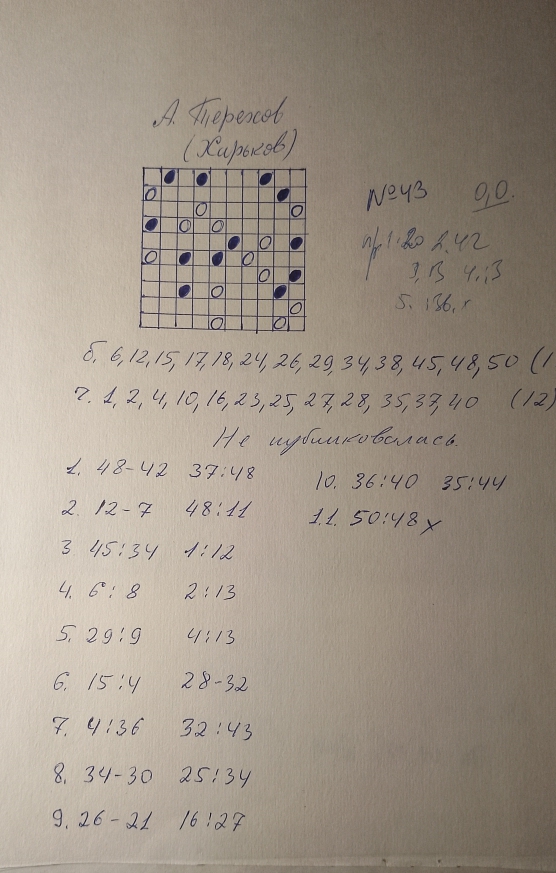 А. Терехов
(Харьков)
№43 0,0.
б. 6, 12, 15, 17, 18, 24, 26, 29, 34, 38, 45, 48, 50 (1
ч. 1, 2, 4, 10, 16, 23, 25, 27, 28, 35, 37, 40 (12)
Не публиковалась.
1. 48-42 37:48
2. 12-7 48:11
3. 45:34 1:12
4. 6:8 2:13
5. 29:9 4:13
6. 15:4 28-32
7. 4:36 32:43
8. 34-30 25:34
9. 26-21 16:27
10. 36:40 35:44
11. 50:48 x